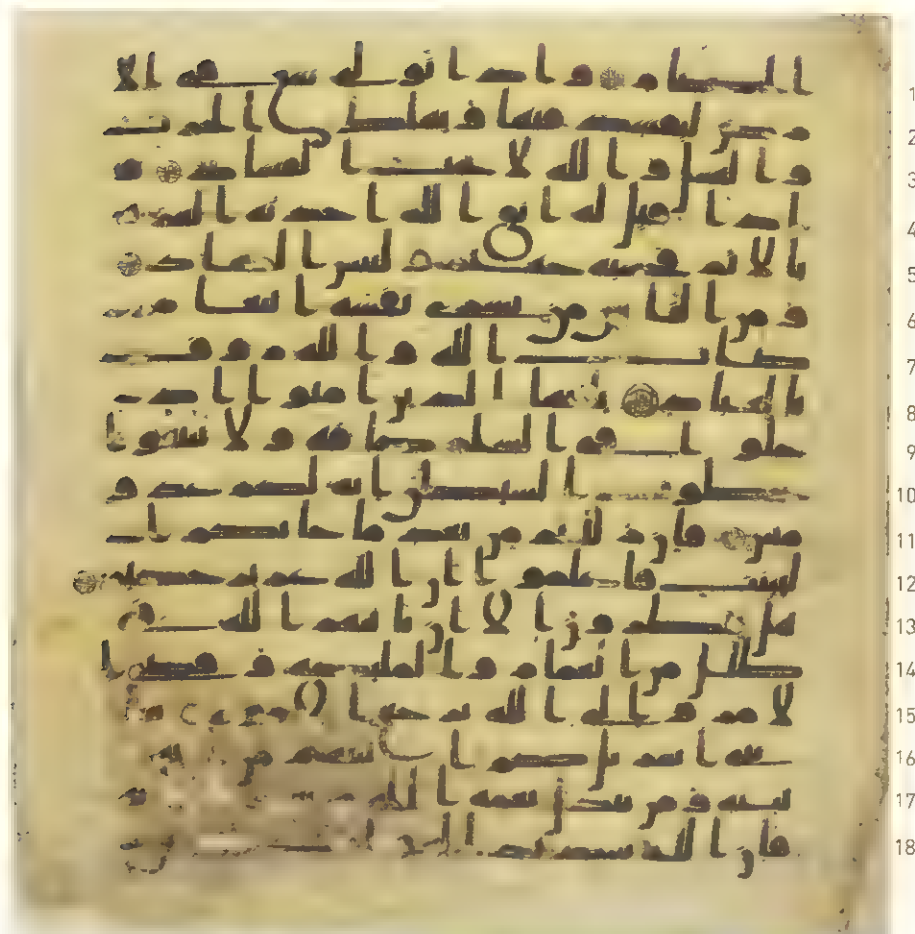 الخصام واذا تولى سعى في الا 1
رض ليفسد فيها ويهلك الحرث 2
والنسل والله لا يحب الفساد و 3
اذا قيل له اتق الله اخذته العزة 4
بالاثم فحسبه جهنم ولبئس المهاد 5
ومن الناس من يشري نفسه ابتغا مر 6
ضات الله والله روف 7
بالعباد يايها الذين امنوا اد 8
خلوا في السلم كافة ولا تتبعوا 9
خطوت الشيطن انه لكم عدو 10
مبين فان زللتم من بعد ما جاتكم ا 11
لبينت فاعلموا ان الله عزيز حكيم 12
هل ينظرون الا ان ياتيهم الله في 13
ظلل من الغمام والملئكة وقضي ا 14
لامر والى الله ترجع الامور سل 15
بني اسريل كم اتينهم من اية 16
بينة ومن يبدل نعمة الله من بعد 17
فان الله شديد العقاب زين 18